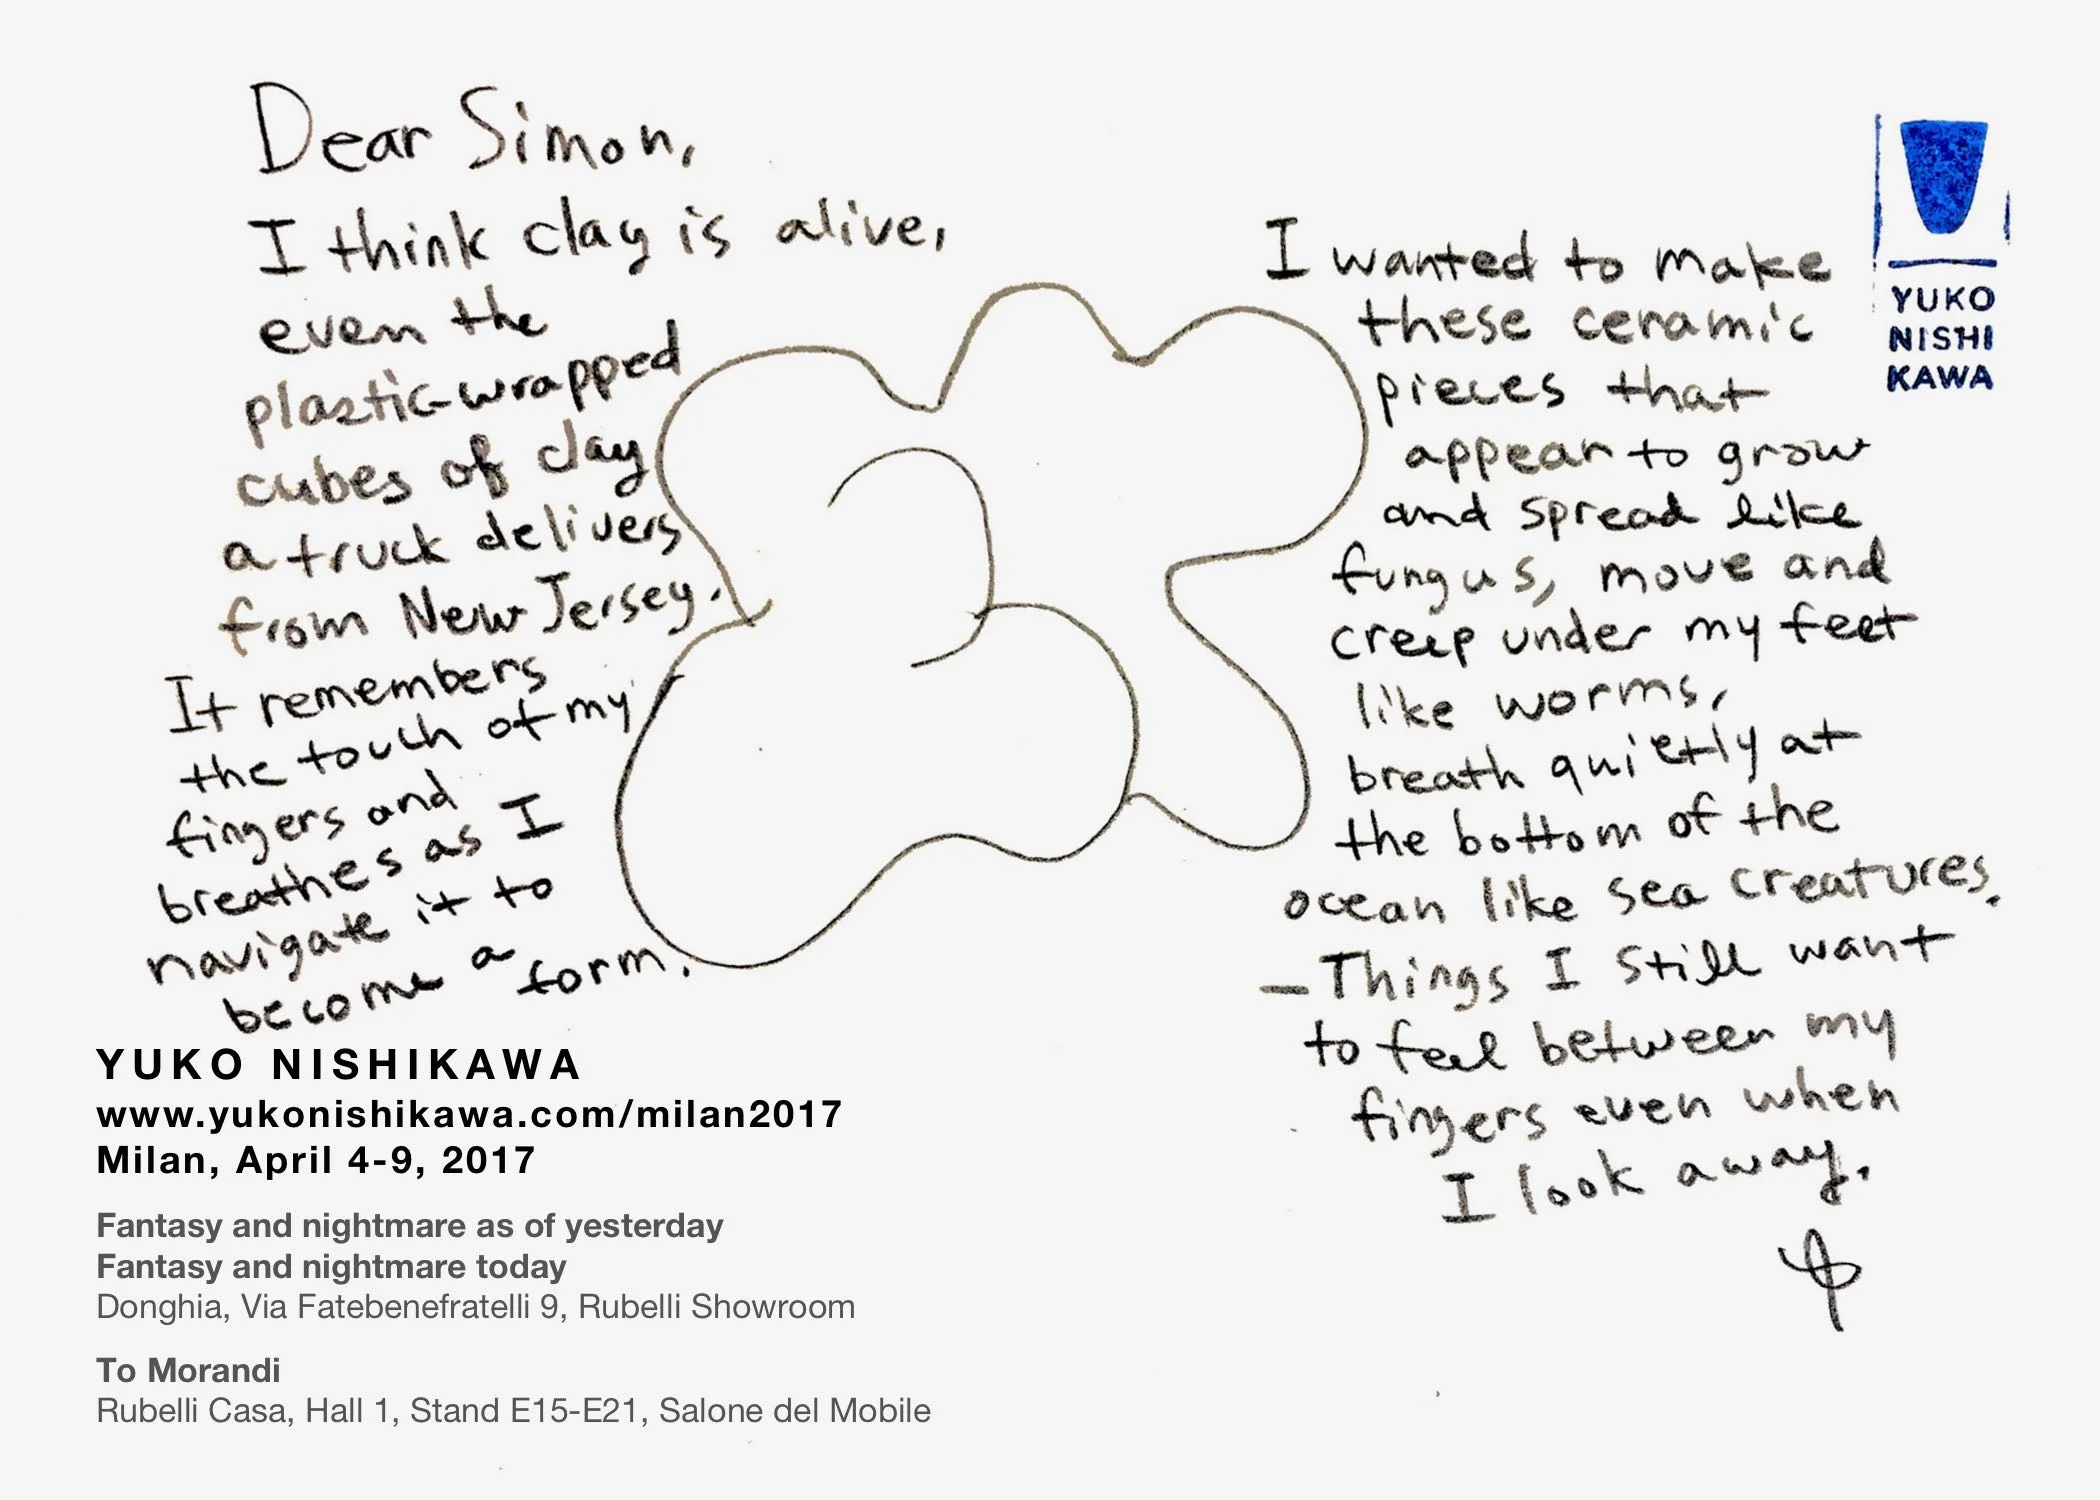 Dear Simon,
I think clay is alive,
even the
plastic-wrapped
cubes of clay
a truck delivers
from New Jersey.
It remembers
the touch of my
fingers and
breathes as I
navigate it to
become a form.
I wanted to make
these ceramic
pieces that
appear to grow
and spread like
fungus, move and
creep under my feet
like worms,
breath quietly at
the bottom of the
ocean like sea creatures.
—Things I still want
to feel between my
fingers even when
I look away.
YUKO
NISHI
KAWA
YUKO NISHIKAWA
www.yukonishikawa.com/milan2017
Milan, April 4-9, 2017
Fantasy and nightmare as of yesterday
Fantasy and nightmare today
Donghia, Via Fatebenefratelli 9, Rubelli Showroom
To Morandi
Rubelli Casa, Hall 1, Stand E15-E21, Salone del Mobile